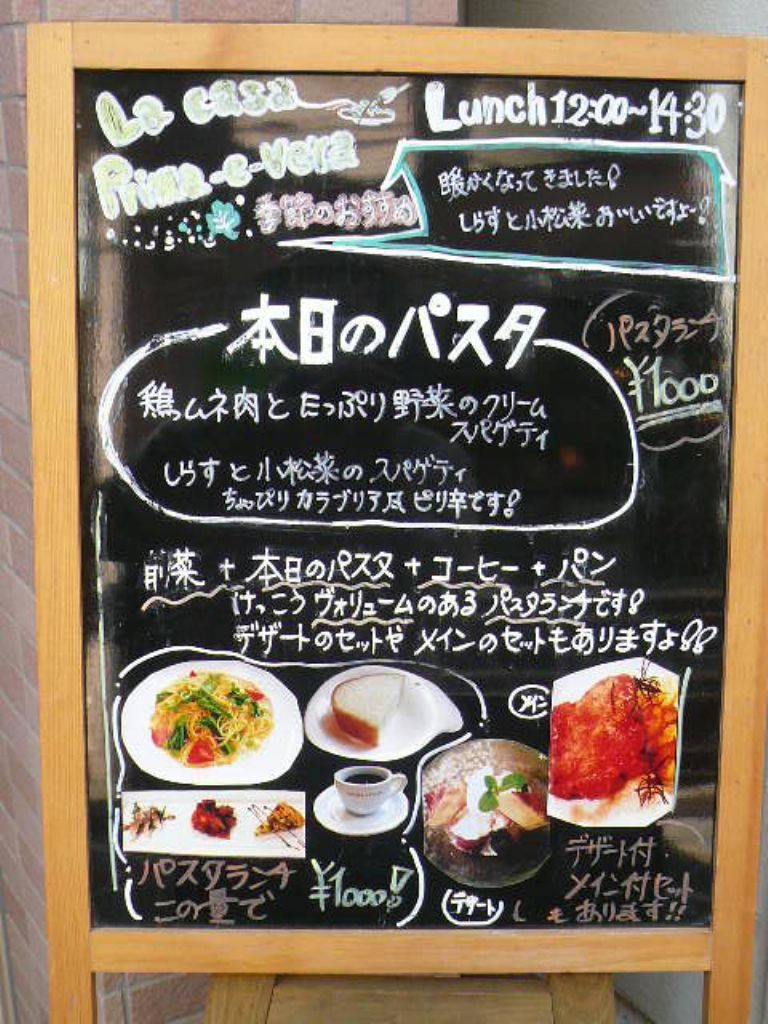 La casa
Prima-e-vera
Lunch 12:00~14:30
季節のおすすめ
暖かくなってきました!
しらすと小松菜おいしいですよ~!
本日のパスタ
パスタランチ
¥1000
鶏ムネ肉とたっぷり野菜のクリーム
スパゲティ
しらすと小松菜のスパゲティ
ちょっぴりカラブリア風ピリ辛です!
前菜+本日のパスタ+コーヒー+パン
けっこうヴォリュームのあるパスタランチです!
デザートのセットやメインのセットもありますよ!!
メイン
パスタランチ
この量で
¥1000!
デザート
デザート付
メイン付セット
もあります!!